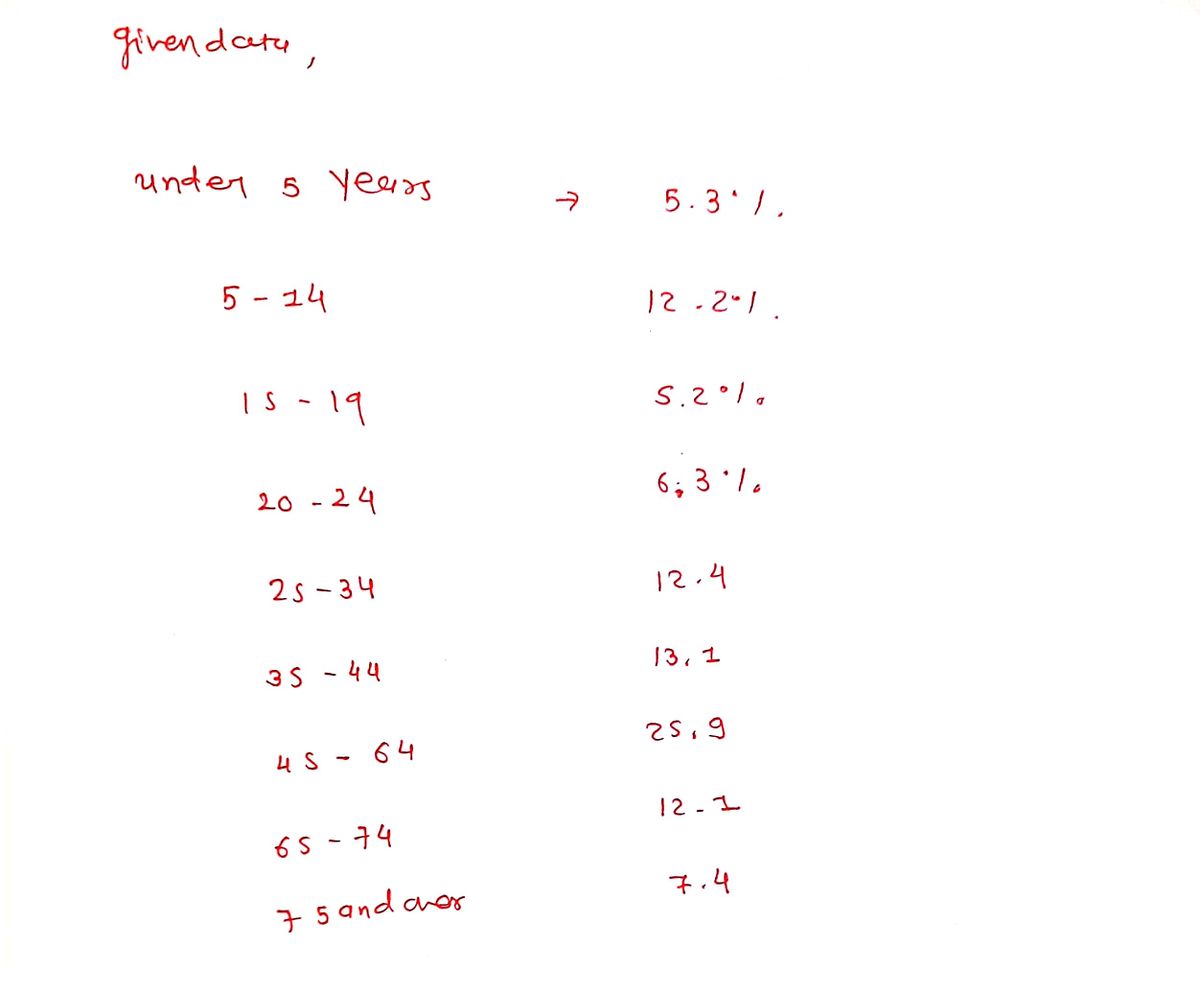 given data,
under 5 years → 5.3%.
5 - 14 12.2%.
15 - 19 5.2%
20 - 24 6.3%
25 - 34 12.4
35 - 44 13.1
45 - 64 25.9
65 - 74 12.1
75 and over 7.4